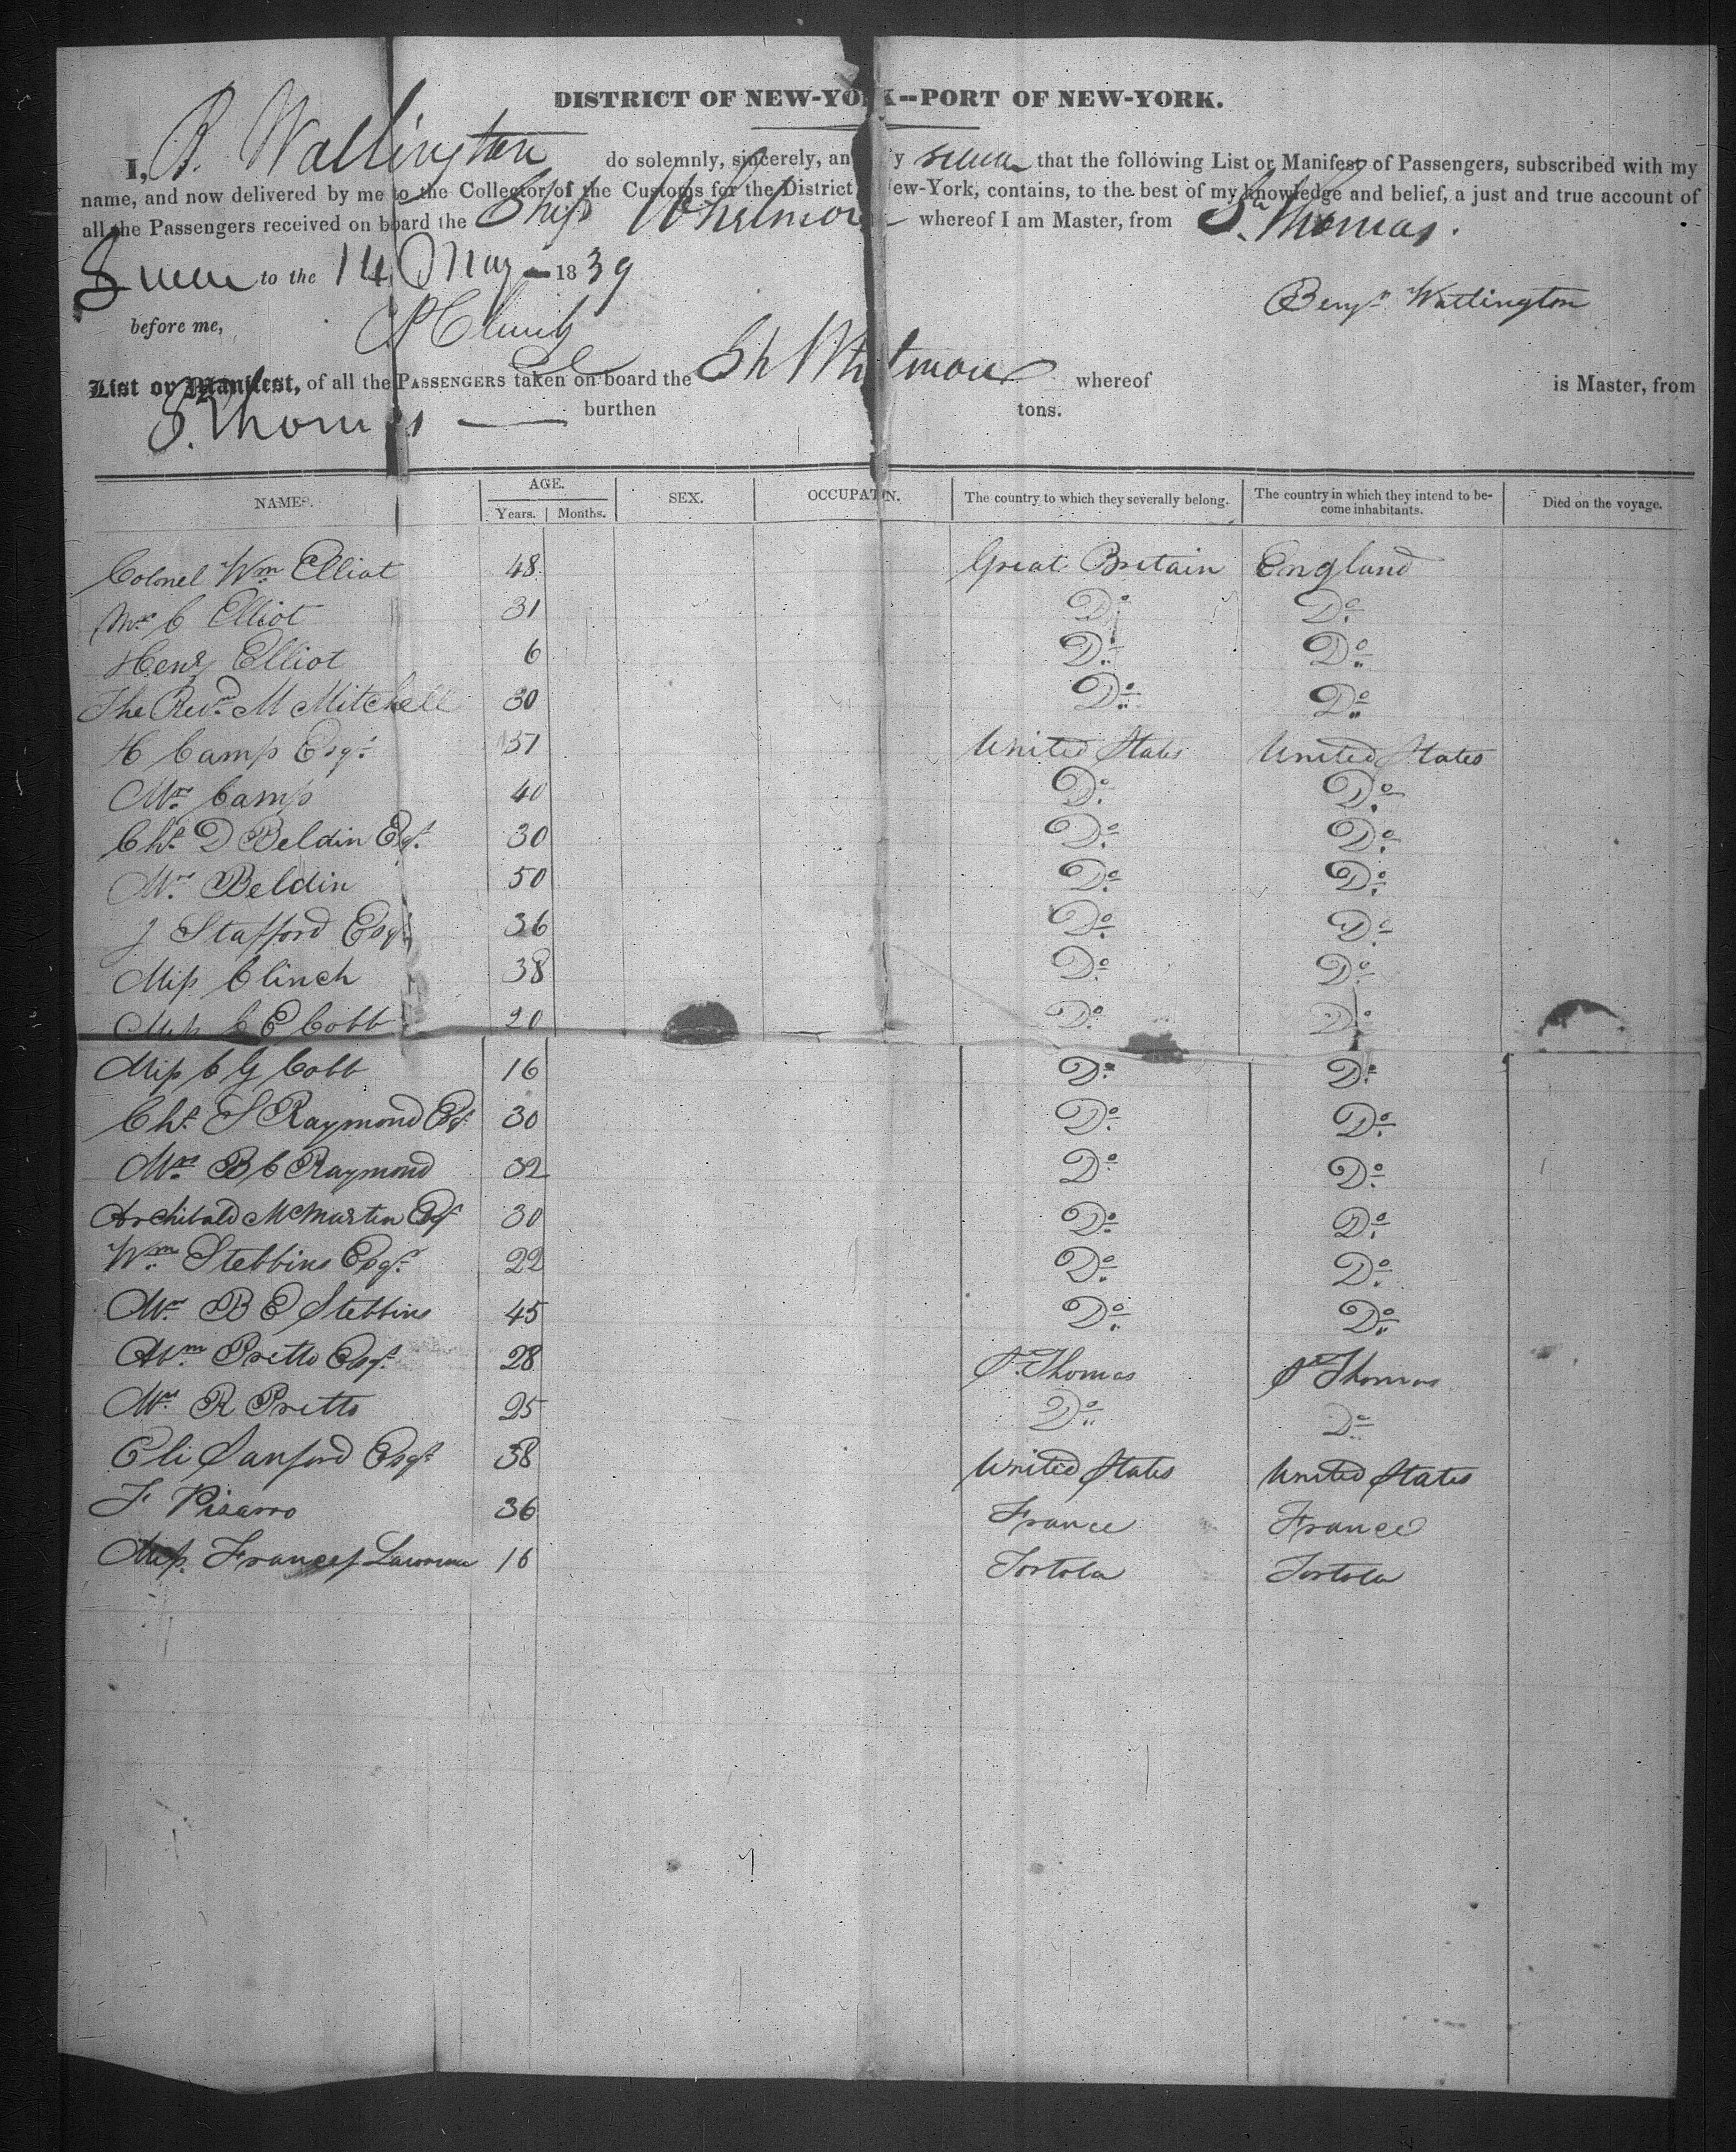 DISTRICT OF NEW-YORK--PORT OF NEW-YORK.
I, B. Watlington do solemnly, sincerely, an y swear that the following List or Manifest of Passengers, subscribed with my
name, and now delivered by me to the Collector of the Customs for the District ew-York, contains, to the best of my knowledge and belief, a just and true account of
all the Passengers received on board the Ship Whitmore whereof I am Master, from St. Thomas.
Sworn to the 14 May 1839
Benjn Watlington
before me,
List or Manifest, of all the PASSENGERS taken on board the Sh Whitmore whereof is Master, from
St. Thomas burthen tons.
NAMES. AGE. Years. Months. SEX. OCCUPATION. The country to which they severally belong. The country in which they intend to become inhabitants. Died on the voyage.
Colonel Wm Elliot 48 Great Britain England
Mrs C Elliot 31 Do Do
Heny Elliot 6 Do Do
The Revd. M Mitchell 30 Do Do
H Camp Esqr. 37 United States United States
Mrs. Camp 40 Do Do
Chs. D Beldin Esqr. 30 Do Do
Mrs. Beldin 50 Do Do
J Stafford Esqr 36 Do Do
Miss Clinch 38 Do Do
Miss C E Cobb 20 Do Do
Miss C G Cobb 16 Do Do
Chs. S Raymond Esqr 30 Do Do
Mrs. B C Raymond 32 Do Do
Archibald McMartin Esqr 30 Do Do
Wm. Stebbins Esqr. 22 Do Do
Mrs. B E Stebbins 45 Do Do
Abm. Pretto Esqr. 28 St. Thomas St Thomas
Mrs. R Pretto 25 Do Do
Eli Sanford Esqr 38 United States United States
F Pisarro 36 France France
Miss. Frances Lawrence 16 Tortola Tortola